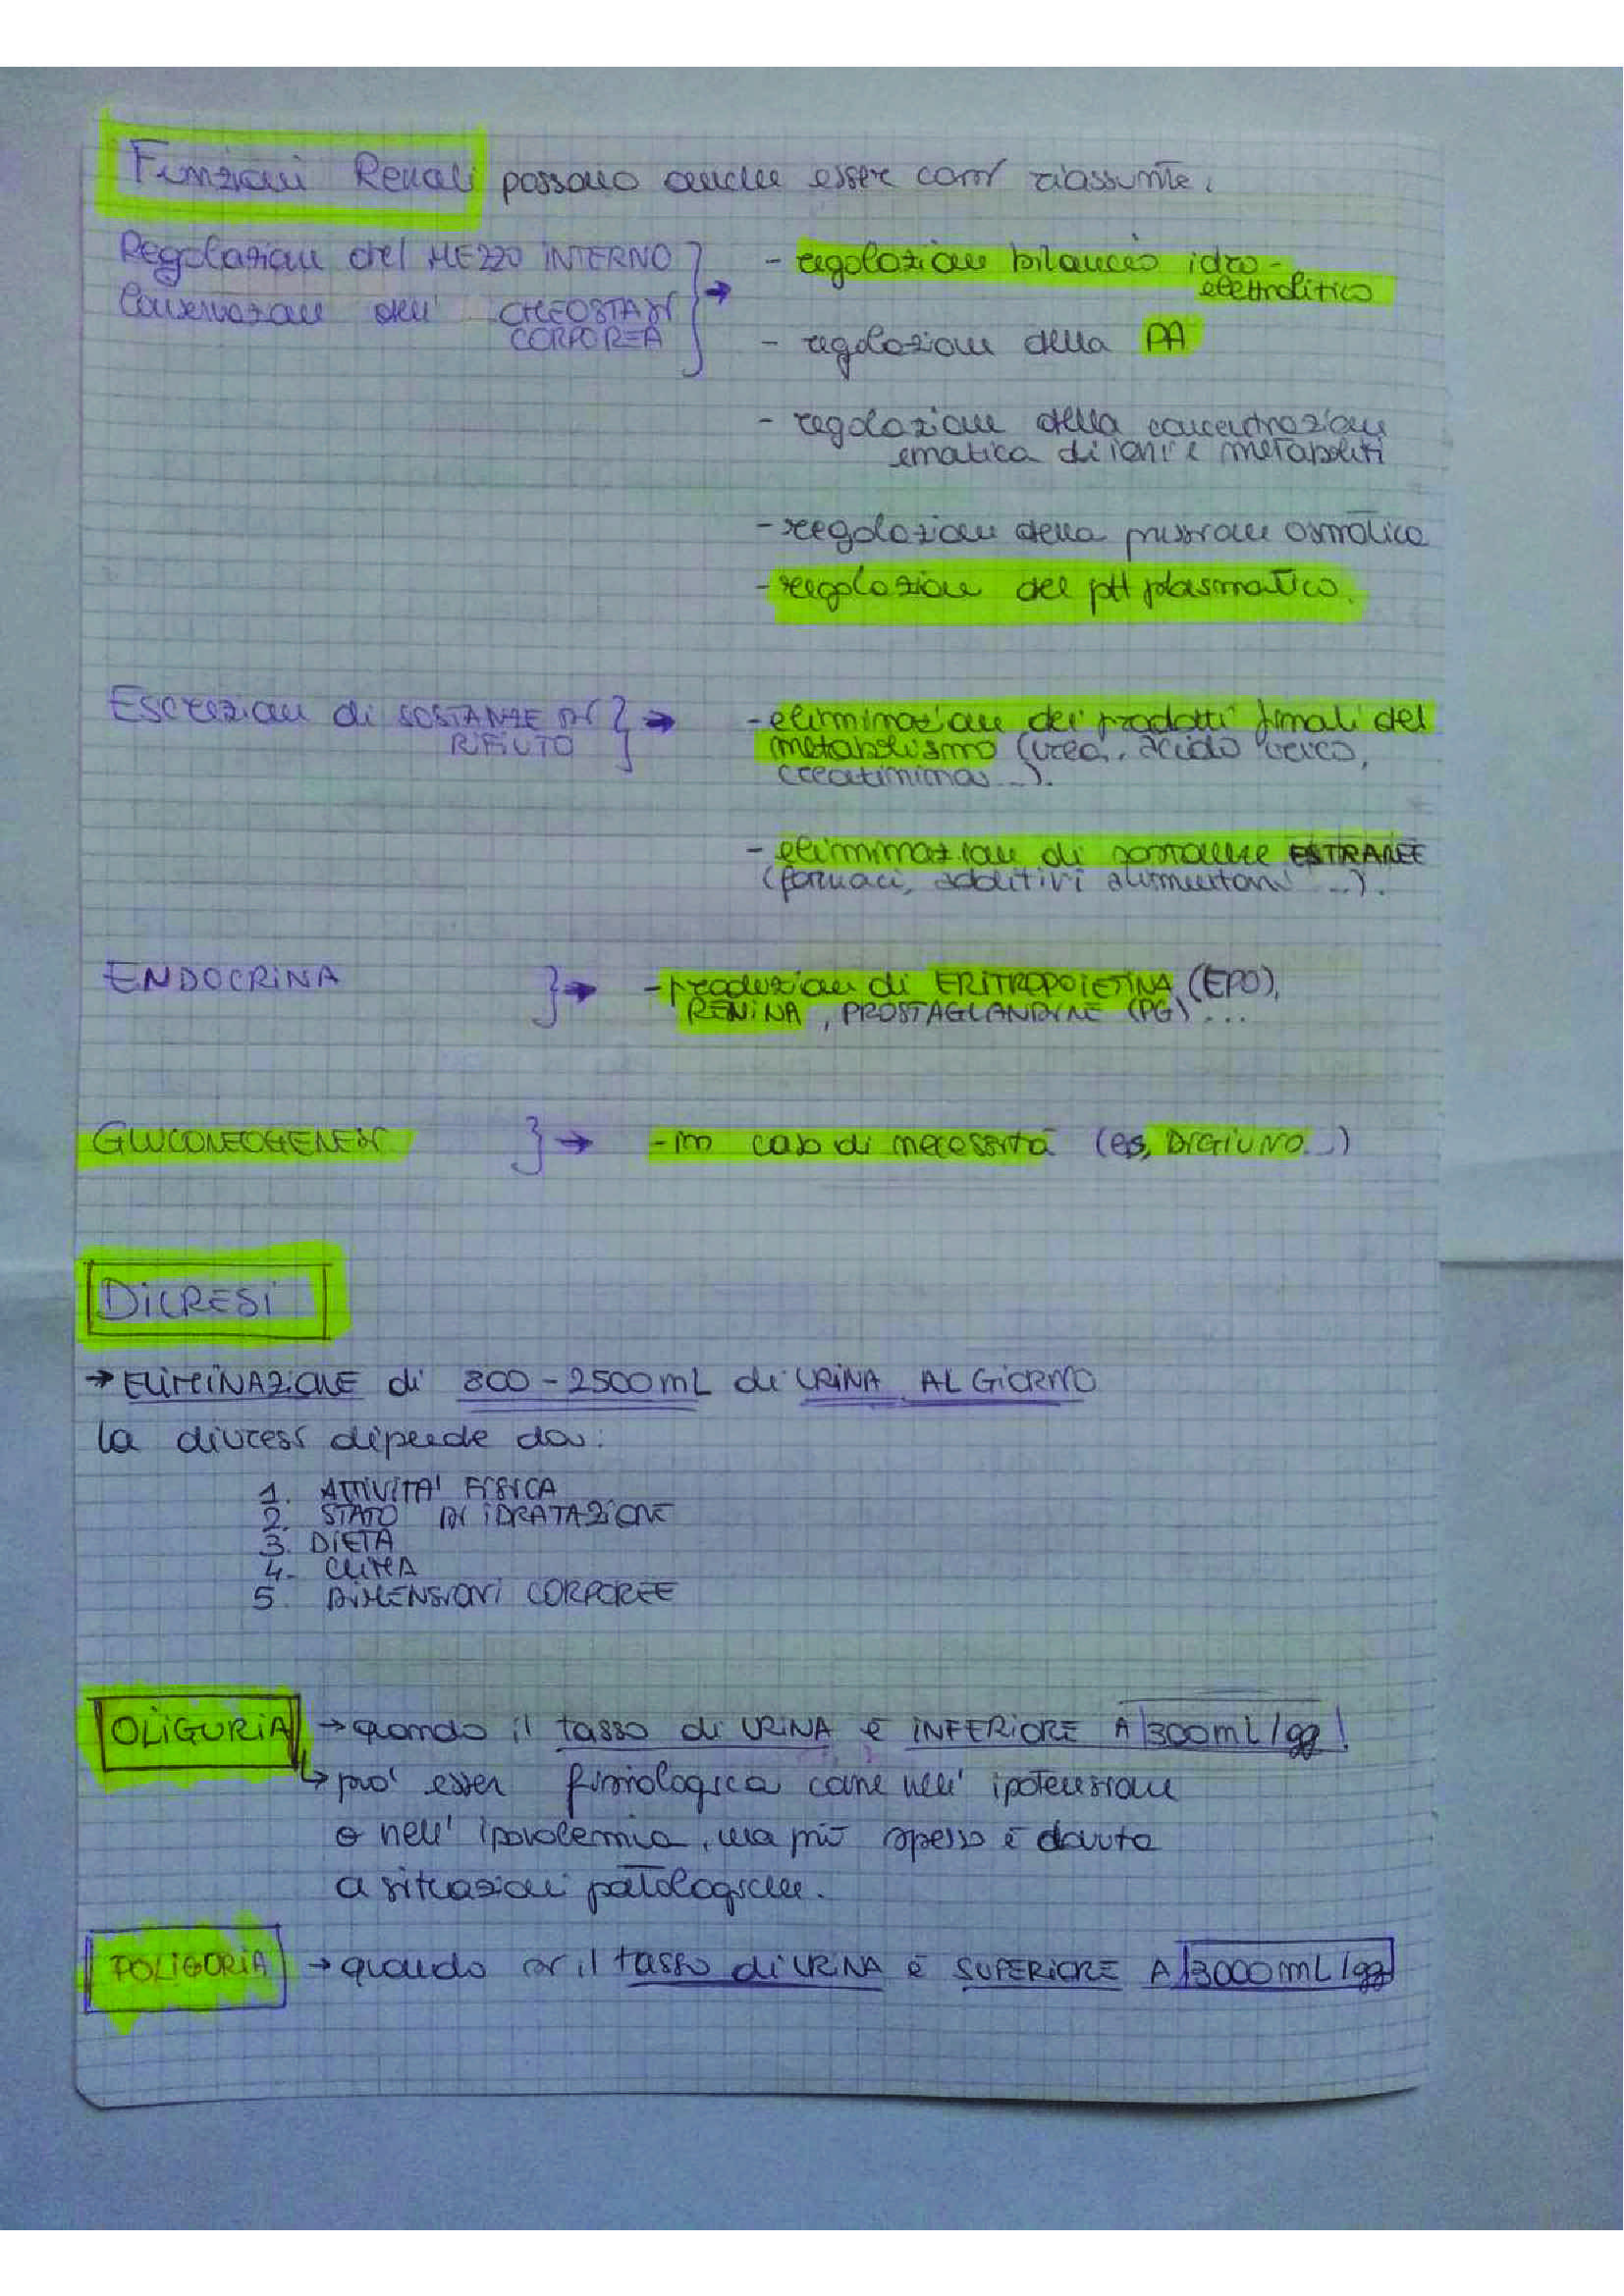 Funzioni Renali possono anche essere così riassunte.
Regolazione del MEZZO INTERNO
Conservazione dell' OMEOSTASI
CORPOREA
} →
- regolazione bilancio idro-
elettrolitico
- regolazione della PA
- regolazione della concentrazione
ematica di ioni e metaboliti
- regolazione della pressione osmotica
- regolazione del pH plasmatico.
Escrezione di SOSTANZE DI
RIFIUTO
} →
- eliminazione dei prodotti finali del
metabolismo (urea, acido urico,
creatinina ...).
- eliminazione di sostanze ESTRANEE
(farmaci, additivi alimentari ...).
ENDOCRINA } → - produzione di ERITROPOIETINA (EPO),
RENINA, PROSTAGLANDINE (PG) ...
GLUCONEOGENESI } → - in caso di necessità (es, DIGIUNO...)
DIURESI
→ ELIMINAZIONE di 800-2500mL di URINA AL GIORNO
la diuresi dipende da:
1. ATTIVITA' FISICA
2. STATO DI IDRATAZIONE
3. DIETA
4. CLIMA
5. DIMENSIONI CORPOREE
OLIGURIA → quando il tasso di URINA è INFERIORE A 300mL/gg!
↳ può esser fisiologica come nell' ipotensione
o nell' ipovolemia, ma più spesso è dovuta
a situazioni patologiche.
POLIGURIA → quando il tasso di URINA è SUPERIORE A 3000mL/gg